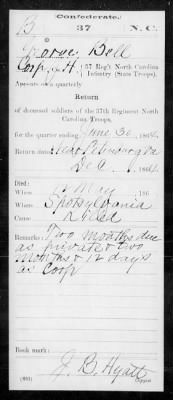 Confederate.
B 37 N.C.
Bell
Corp, Co. H, 37 Reg't North Carolina
Infantry (State Troops).
Appears on a quarterly
Return
of deceased soldiers of the 37th Regiment North
Carolina Troops,
for the quarter ending June 30, 1864.
Return dated Near Petersburg Va
186
Died:
When 12 May, 186
Where Spotsylvania
Cause Killed
Remarks: Two months due
as private & two
months & 12 days
as Corp
Book mark:
J. B. Hyatt
Copyist.